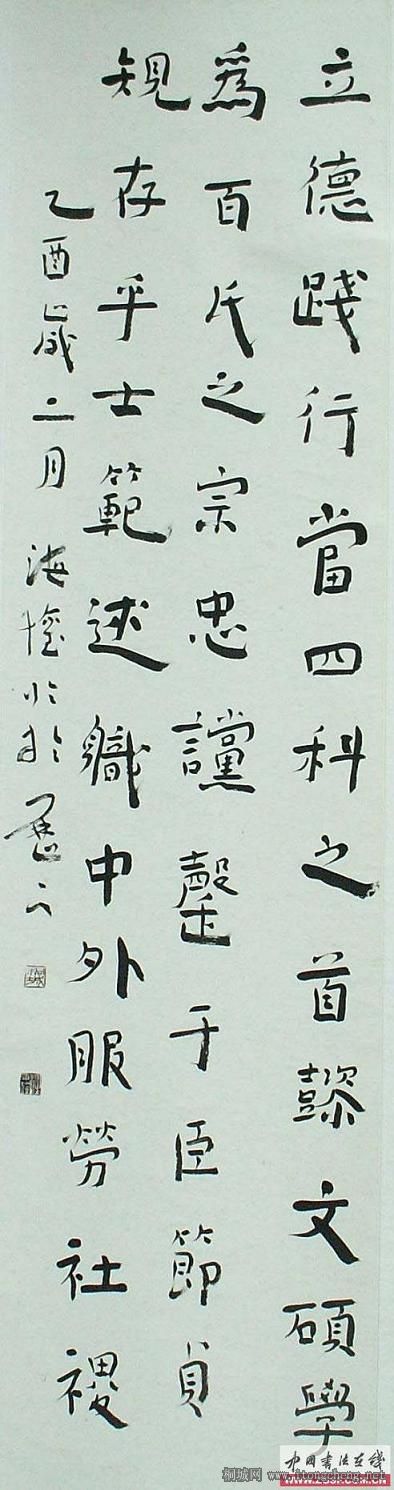 立德踐行當四科之首懿文碩學
爲百氏之宗忠讜罄于臣節貞
規存乎士範述軄中外服勞社稷
乙酉歲二月海於
中国书法在线
桐城网 www.itongcheng.net